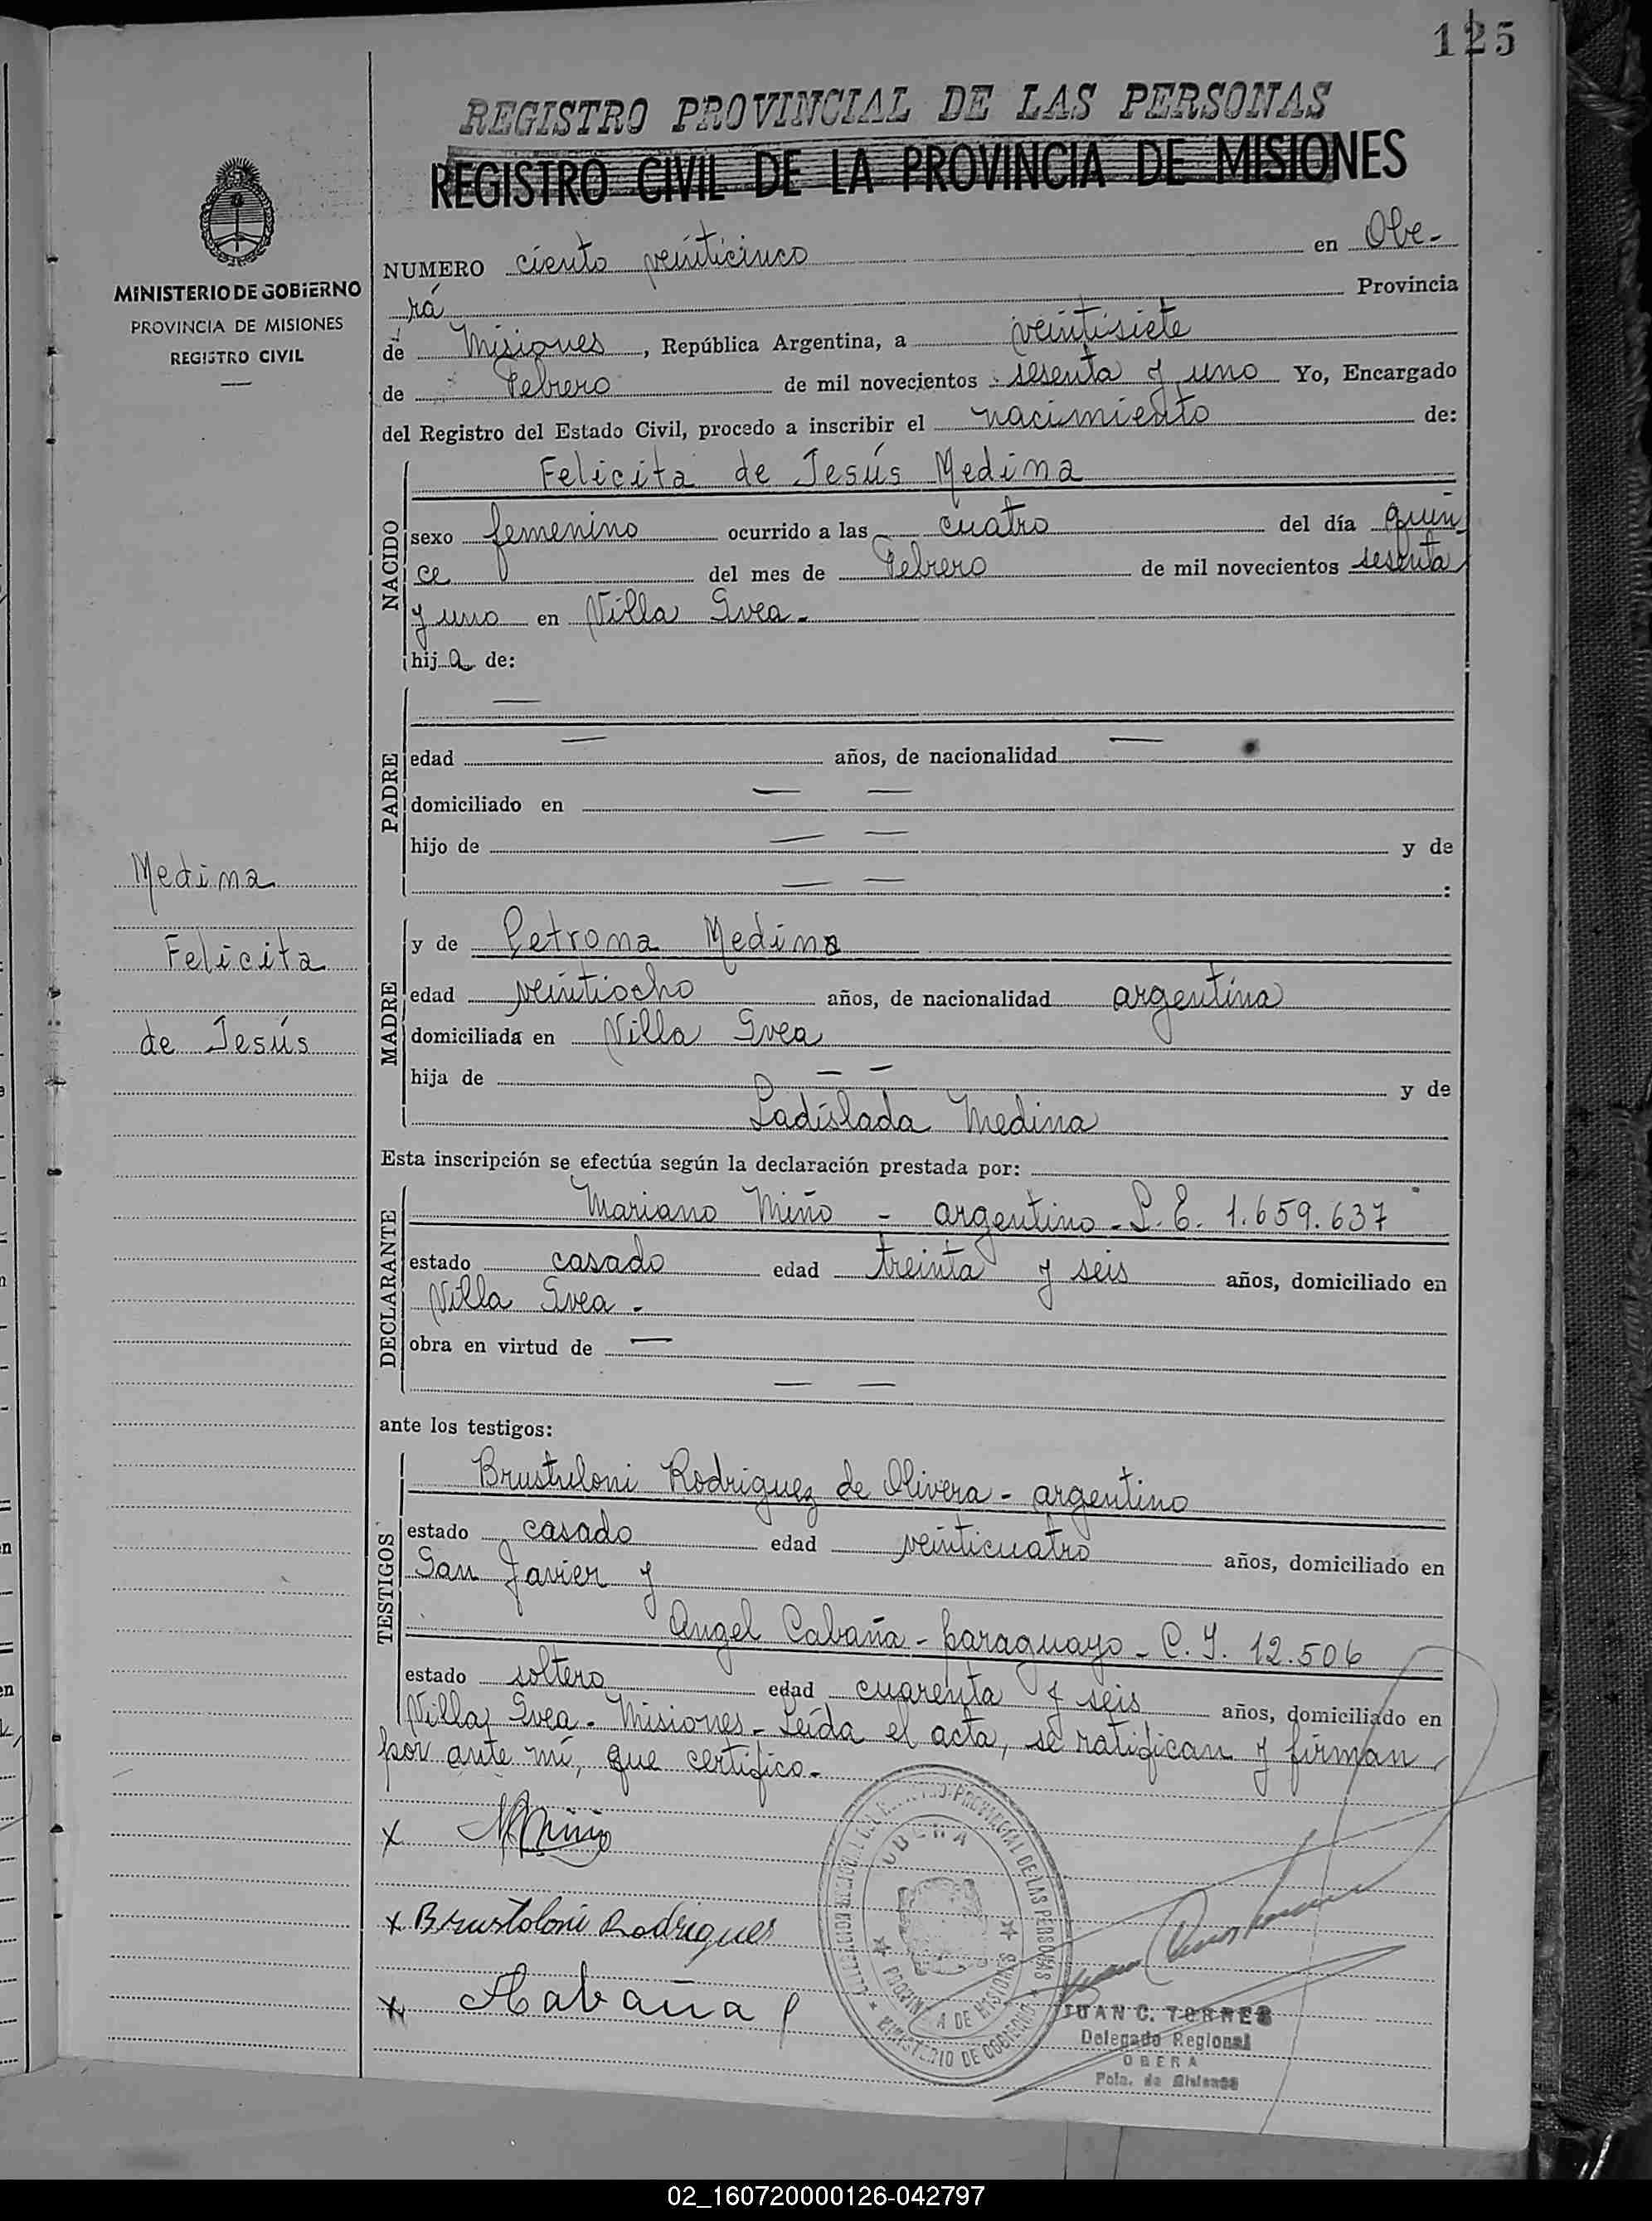 125
REGISTRO PROVINCIAL DE LAS PERSONAS
REGISTRO CIVIL DE LA PROVINCIA DE MISIONES
MINISTERIO DE GOBIERNO
PROVINCIA DE MISIONES
REGISTRO CIVIL
NUMERO ciento veinticinco en Obe-
rá Provincia
de Misiones, República Argentina, a veintisiete
de Febrero de mil novecientos sesenta y uno Yo, Encargado
del Registro del Estado Civil, procedo a inscribir el nacimiento de:
NACIDO
Felicita de Jesús Medina
sexo femenino ocurrido a las cuatro del día quin-
ce del mes de Febrero de mil novecientos sesenta
y uno en Villa Svea.
hija de:
PADRE
—
edad — años, de nacionalidad —
domiciliado en — —
hijo de — — y de
— — :
Medina
Felicita
de Jesús
MADRE
y de Petrona Medina
edad veintiocho años, de nacionalidad argentina
domiciliada en Villa Svea
hija de — — y de
Ladislada Medina
Esta inscripción se efectúa según la declaración prestada por:
DECLARANTE
Mariano Miño - argentino - L. E. 1.659.637
estado casado edad treinta y seis años, domiciliado en
Villa Svea.
obra en virtud de —
— —
ante los testigos:
TESTIGOS
Brustuloni Rodriguez de Olivera - argentino
estado casado edad veinticuatro años, domiciliado en
San Javier y
Angel Cabaña - paraguayo - C. I. 12.506
estado soltero edad cuarenta y seis años, domiciliado en
Villa Svea. Misiones - Leída el acta, se ratifican y firman
por ante mí, que certifico.
x MMiño
x Brustoloni Rodrigues
x ACabaña
OBERA
PROVINCIA DE MISIONES
MINISTERIO DE GOBIERNO
JUAN C. TORRES
Delegado Regional
OBERA
Pcia. de Misiones
02_160720000126-042797